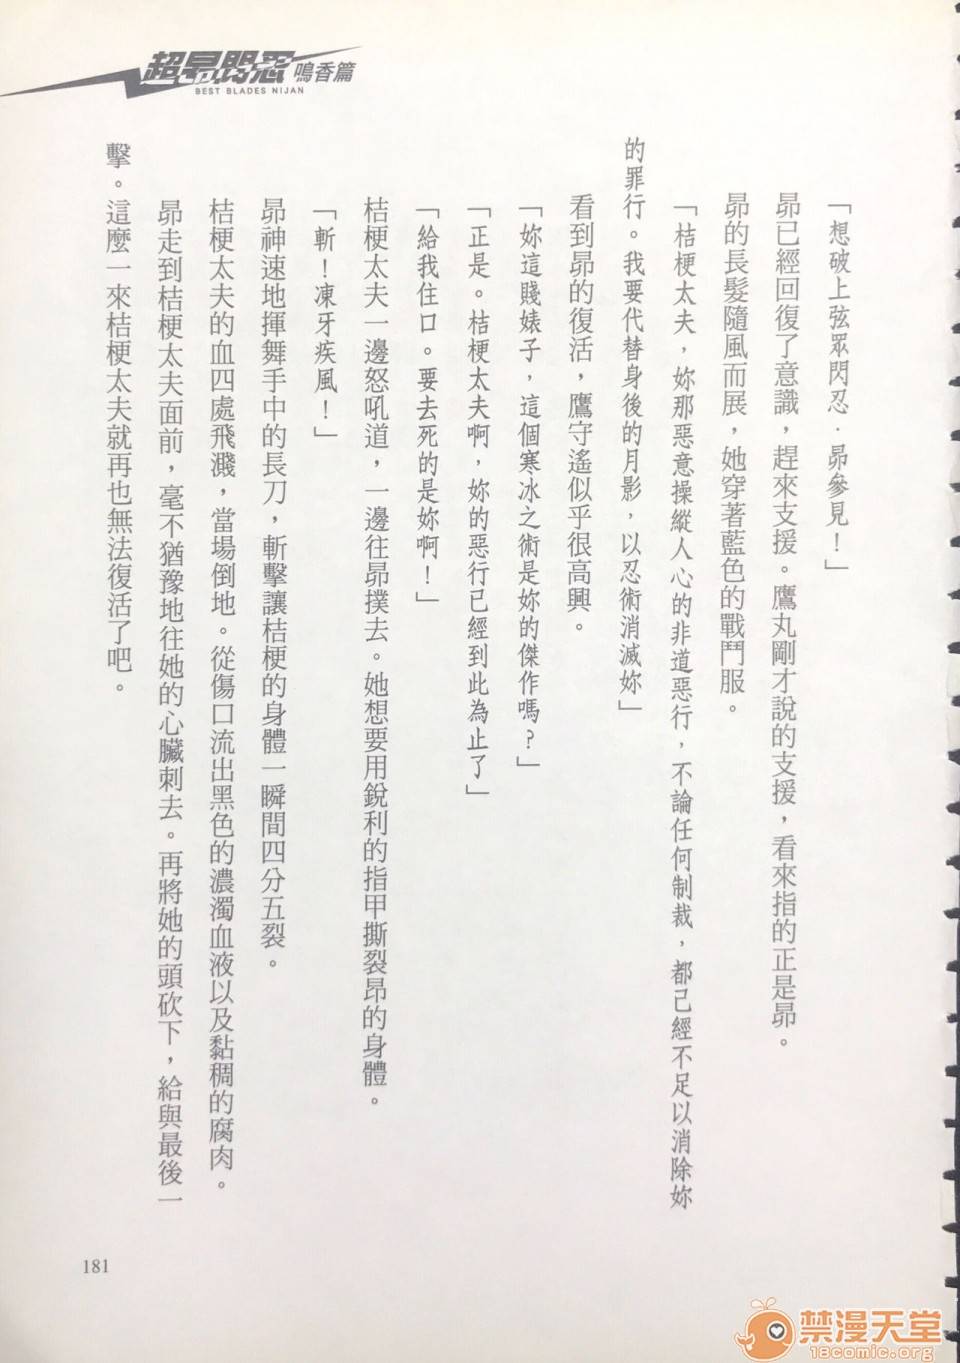 超昂閃忍 鳴香篇
BEST BLADES NIJAN
「想破上弦眾閃忍．昂參見！」
昂已經回復了意識，趕來支援。鷹丸剛才說的支援，看來指的正是昂。
昂的長髮隨風而展，她穿著藍色的戰鬥服。
「桔梗太夫，妳那惡意操縱人心的非道惡行，不論任何制裁，都已經不足以消除妳
的罪行。我要代替身後的月影，以忍術消滅妳」
看到昂的復活，鷹守遙似乎很高興。
「妳這賤婊子，這個寒冰之術是妳的傑作嗎？」
「正是。桔梗太夫啊，妳的惡行已經到此為止了」
「給我住口。要去死的是妳啊！」
桔梗太夫一邊怒吼道，一邊往昂撲去。她想要用銳利的指甲撕裂昂的身體。
「斬！凍牙疾風！」
昂神速地揮舞手中的長刀，斬擊讓桔梗的身體一瞬間四分五裂。
桔梗太夫的血四處飛濺，當場倒地。從傷口流出黑色的濃濁血液以及黏稠的腐肉。
昂走到桔梗太夫面前，毫不猶豫地往她的心臟刺去。再將她的頭砍下，給與最後一
擊。這麼一來桔梗太夫就再也無法復活了吧。
181
禁漫天堂
18comic.org